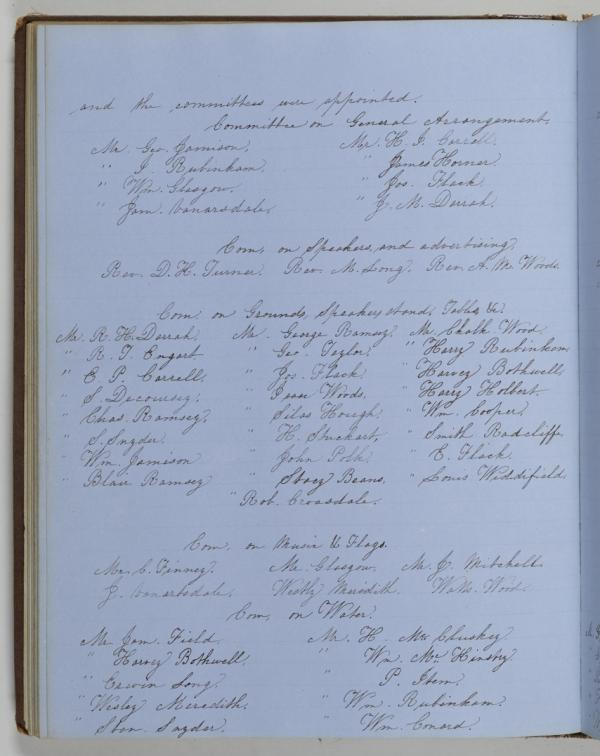 and the committees were appointed.
Committee on General Arrangement,
Mr. Geo. Jamison, Mr. H. J. Carrell.
" I. Rubinkam. " James Horner
" Wm. Glasgow. " Jos. Flack.
" Jam. Vanarsdale, " J. M. Darrah.
Com, on Speakers, and advertising,
Rev. D. H. Turner. Rev. M. Long, Rev. A. M. Woods.
Com. on Grounds, Speakers stand, Tables &c.
Mr. R. H. Darrah, Mr. George Ramsey, Mr. Chalk Wood.
" R. T. Engart " Geo. Taylor, " Harry Rubinkam,
" E. P. Carrell, " Jos. Flack, " Harvey Bothwell
" S. Decoursey, " Isaac Woods, " Harry Holbert
" Chas. Ramsey, " Silas Hough, " Wm. Cooper,
" S. Snyder. " H. Stuckart, " Smith Radcliff,
" Wm. Jamison " John Polk. " E. Flack.
" Blair Ramsey " Stacy Beans. " Louis Weddifield.
" Rob. Croasdale.
Com, on Music & Flags.
Mr. C. Finney, Mr. Glasgow, Mr. J. Mitchell
J. Vanartsdale, Westly Meredith. Watts. Wood.
Com, on Water.
Mr. Jam. Field, Mr. H. Mc Cluskey
" Harvey Bothwell, " Wm. Mc Kinstry
" Erwin Long. " P.
" Wesley Meredith. " Wm. Rubinkam.
" Stan. Snyder. " Wm. Conard.